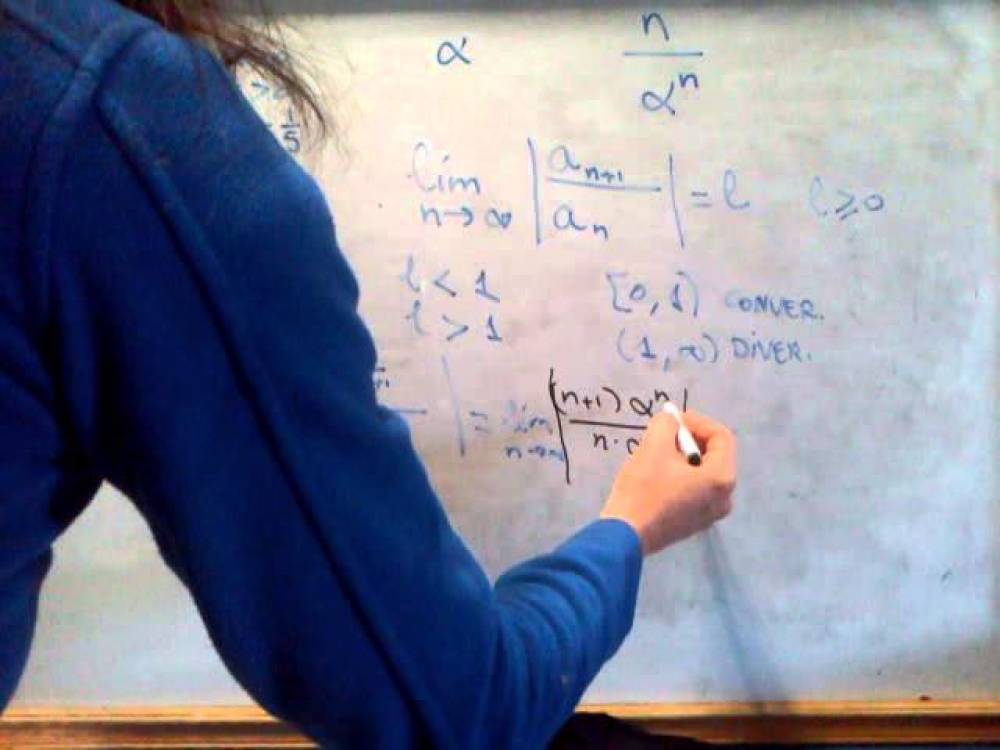 α n/αⁿ
1/5
lim n→∞ |aₙ₊₁/aₙ| = l l ≥ 0
l < 1 [0,1) CONVER.
l > 1 (1,∞) DIVER.
| = lim n→∞ |(n+1) αⁿ / n·